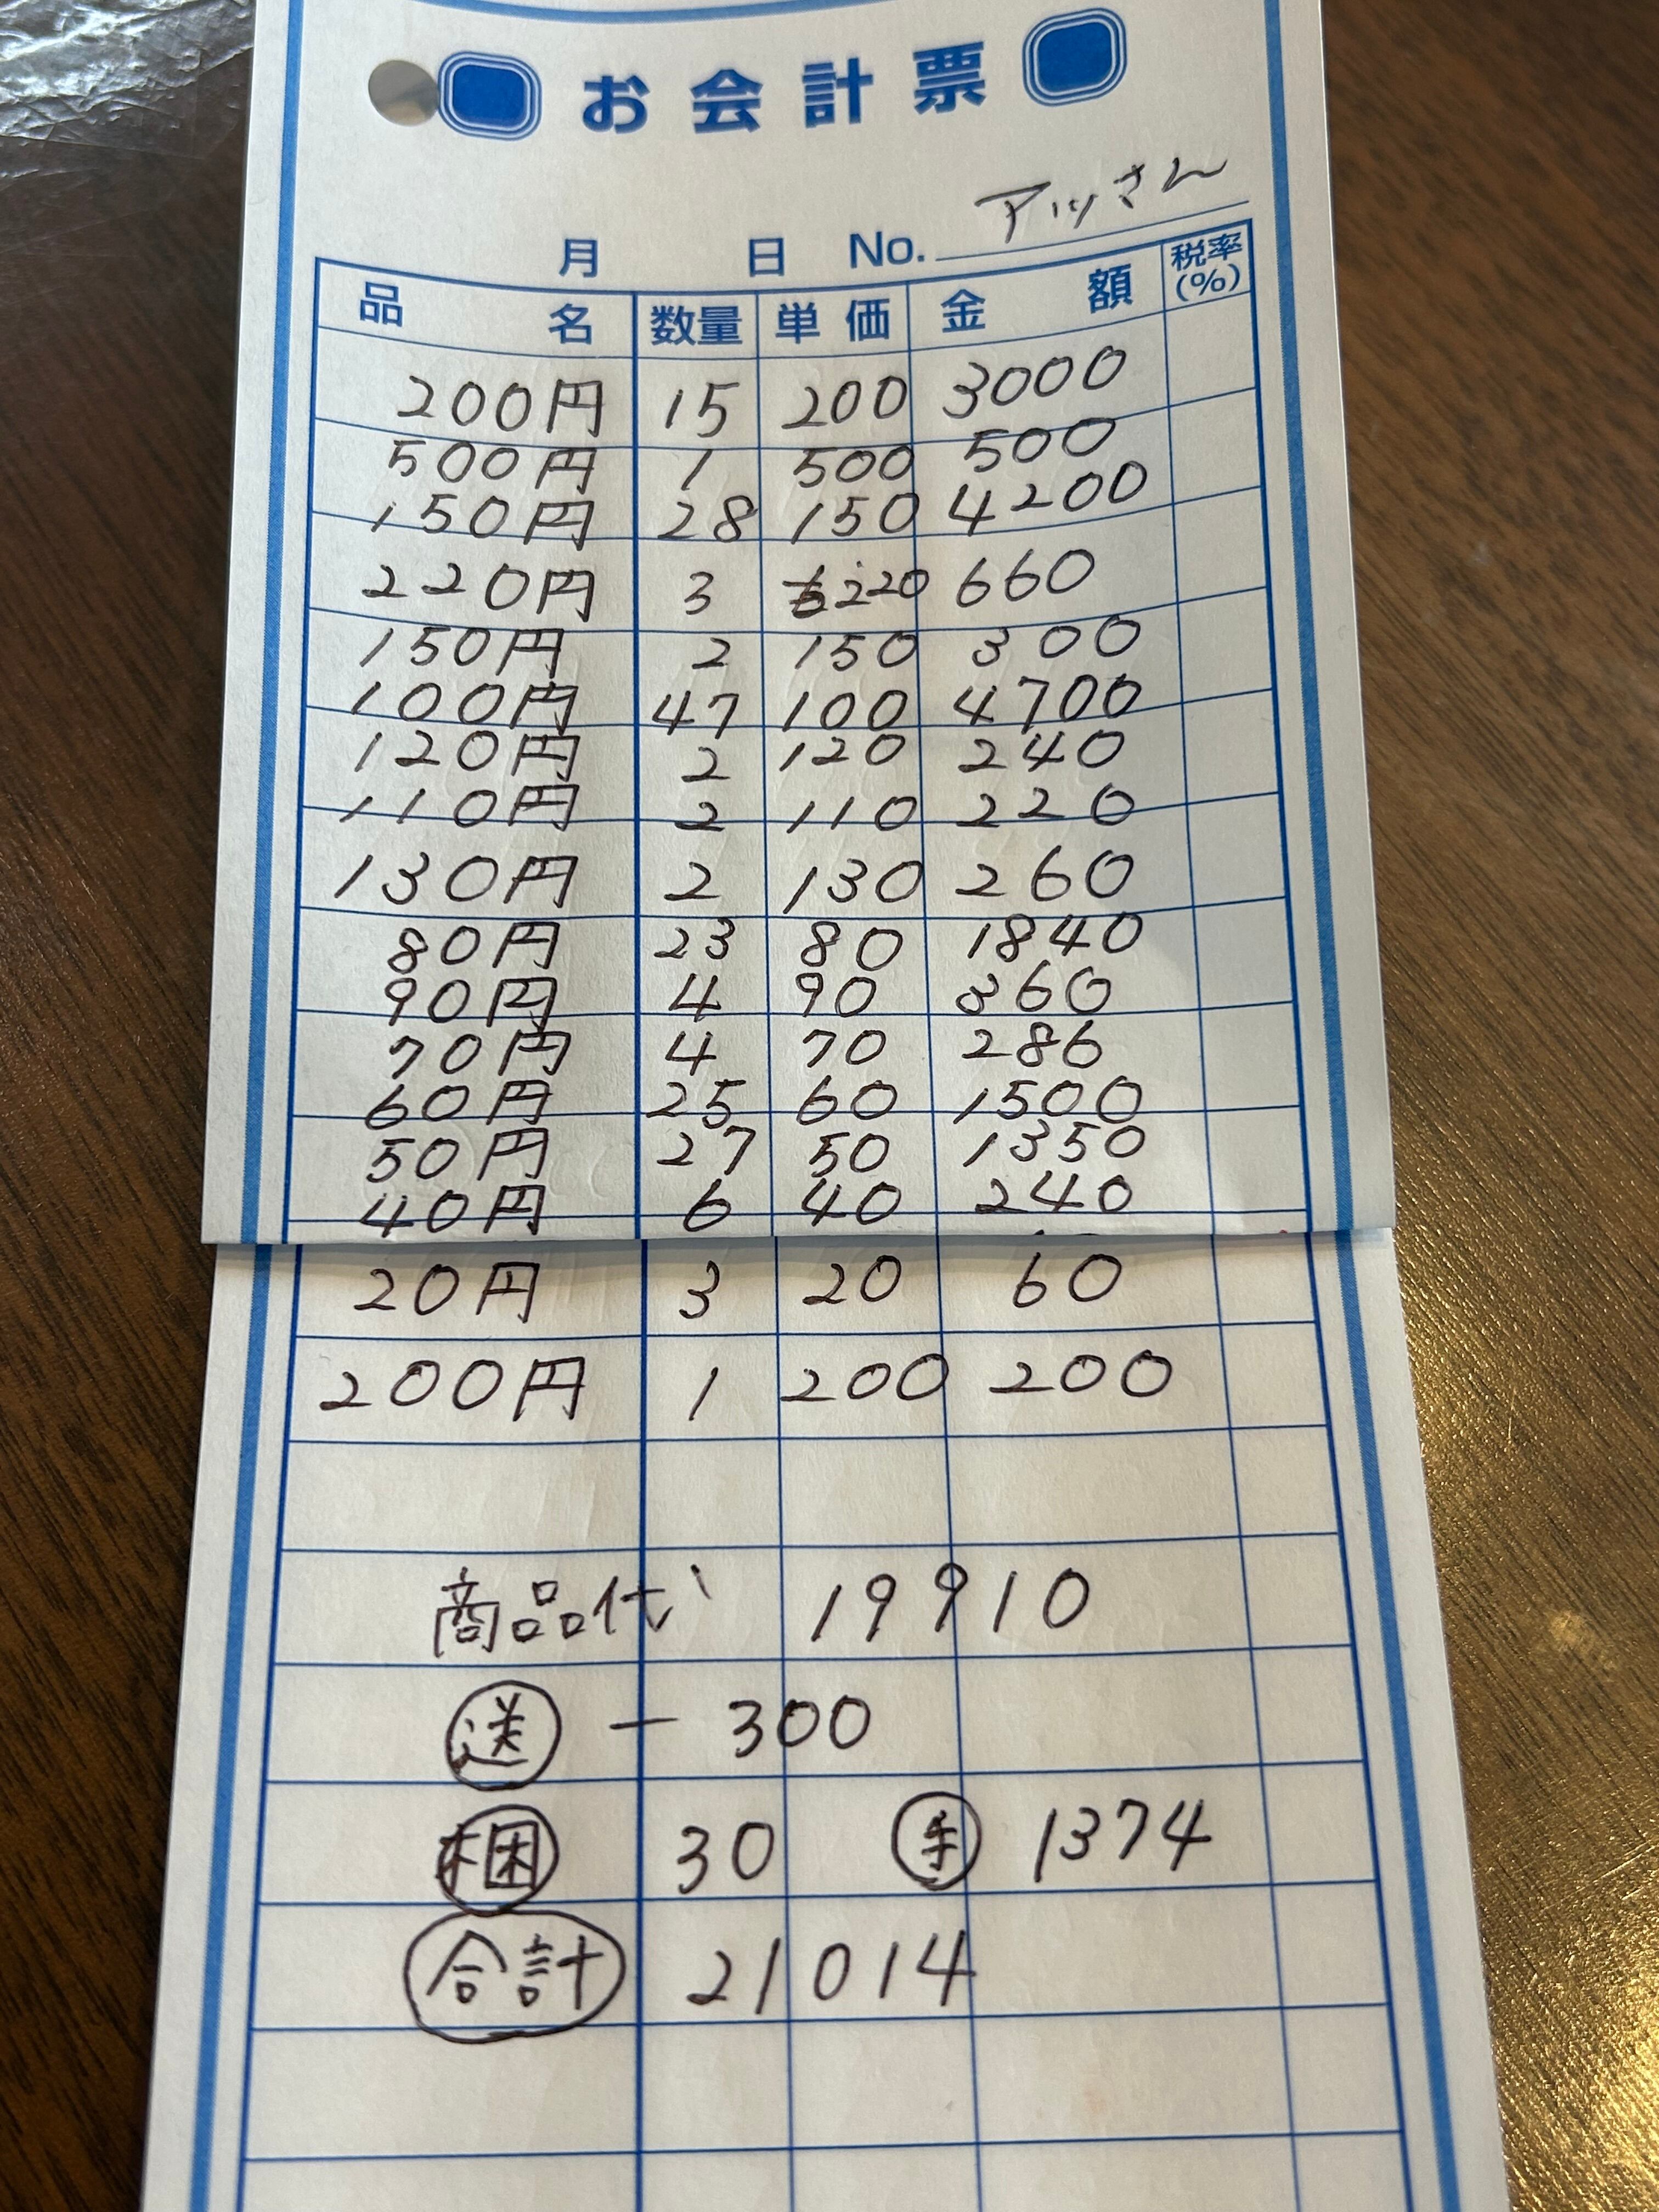 お会計票
月 日 No. アッさん
品名 数量 単価 金額 税率(%)
200円 15 200 3000
500円 1 500 500
150円 28 150 4200
220円 3 220 660
150円 2 150 300
100円 47 100 4700
120円 2 120 240
110円 2 110 220
130円 2 130 260
80円 23 80 1840
90円 4 90 360
70円 4 70 286
60円 25 60 1500
50円 27 50 1350
40円 6 40 240
20円 3 20 60
200円 1 200 200
商品代 19910
送 - 300
梱 30 手 1374
合計 21014